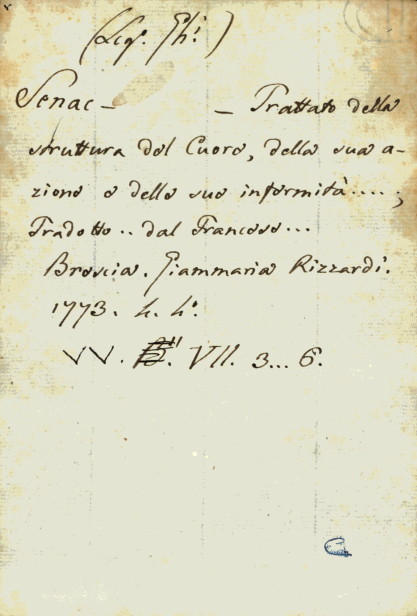 (Leg. Gh.)
Senac - - Trattato della
struttura del Cuore, della sua a-
zione e delle sue infermità....;
Tradotto.. dal Francese...
Brescia. Giammaria Rizzardi.
1773. 4. 4°.
VV. VII. 3... 6.